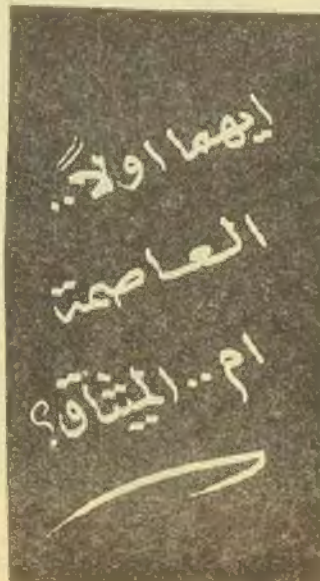 ايهما اولاً..
العاصمة
ام.. الميثاق؟